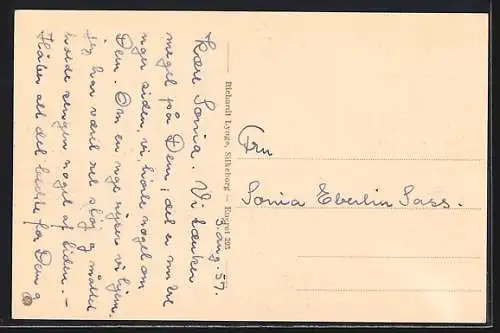 3. aug. 57.
Kære Sonia. Vi tænker
meget på Dem, det er nu
nger siden, vi hørte noget om
Dem. Om en uge rejser vi hjem.
jeg har været ret sløj og måttet
holde sengen noget af tiden. –
Håber alt det bedste for Dem og
Richardt Lyngs, Silkeborg — Eneret 205
Fru
Sonia Eberlin Sass.